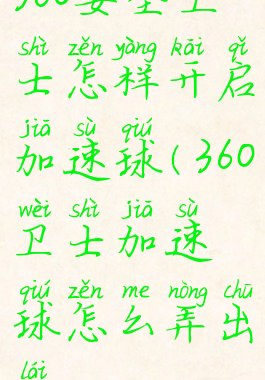 360安全卫
shì zěn yàng kāi qǐ
士怎样开启
jiā sù qiú
加速球(360
wèi shì jiā sù
卫士加速
qiú zěn me nòng chū
球怎么弄出
lái